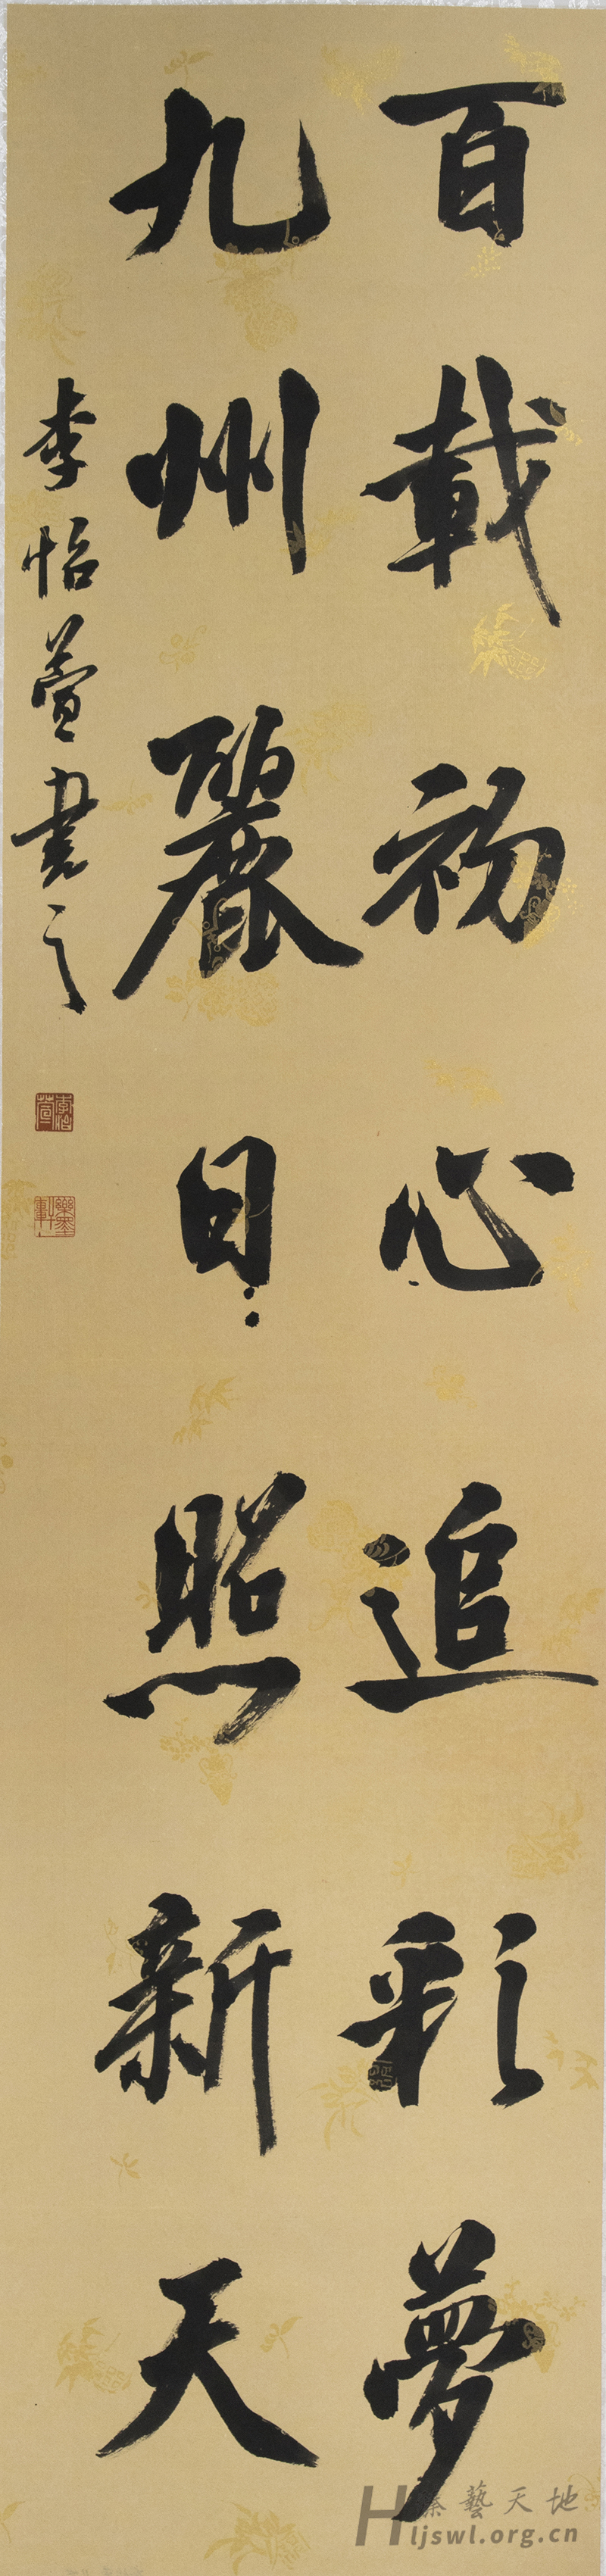 百載初心追彩夢
九州麗日照新天
李怡萱書之
李怡萱
樂墨軒
臻藝天地
Hljswl.org.cn